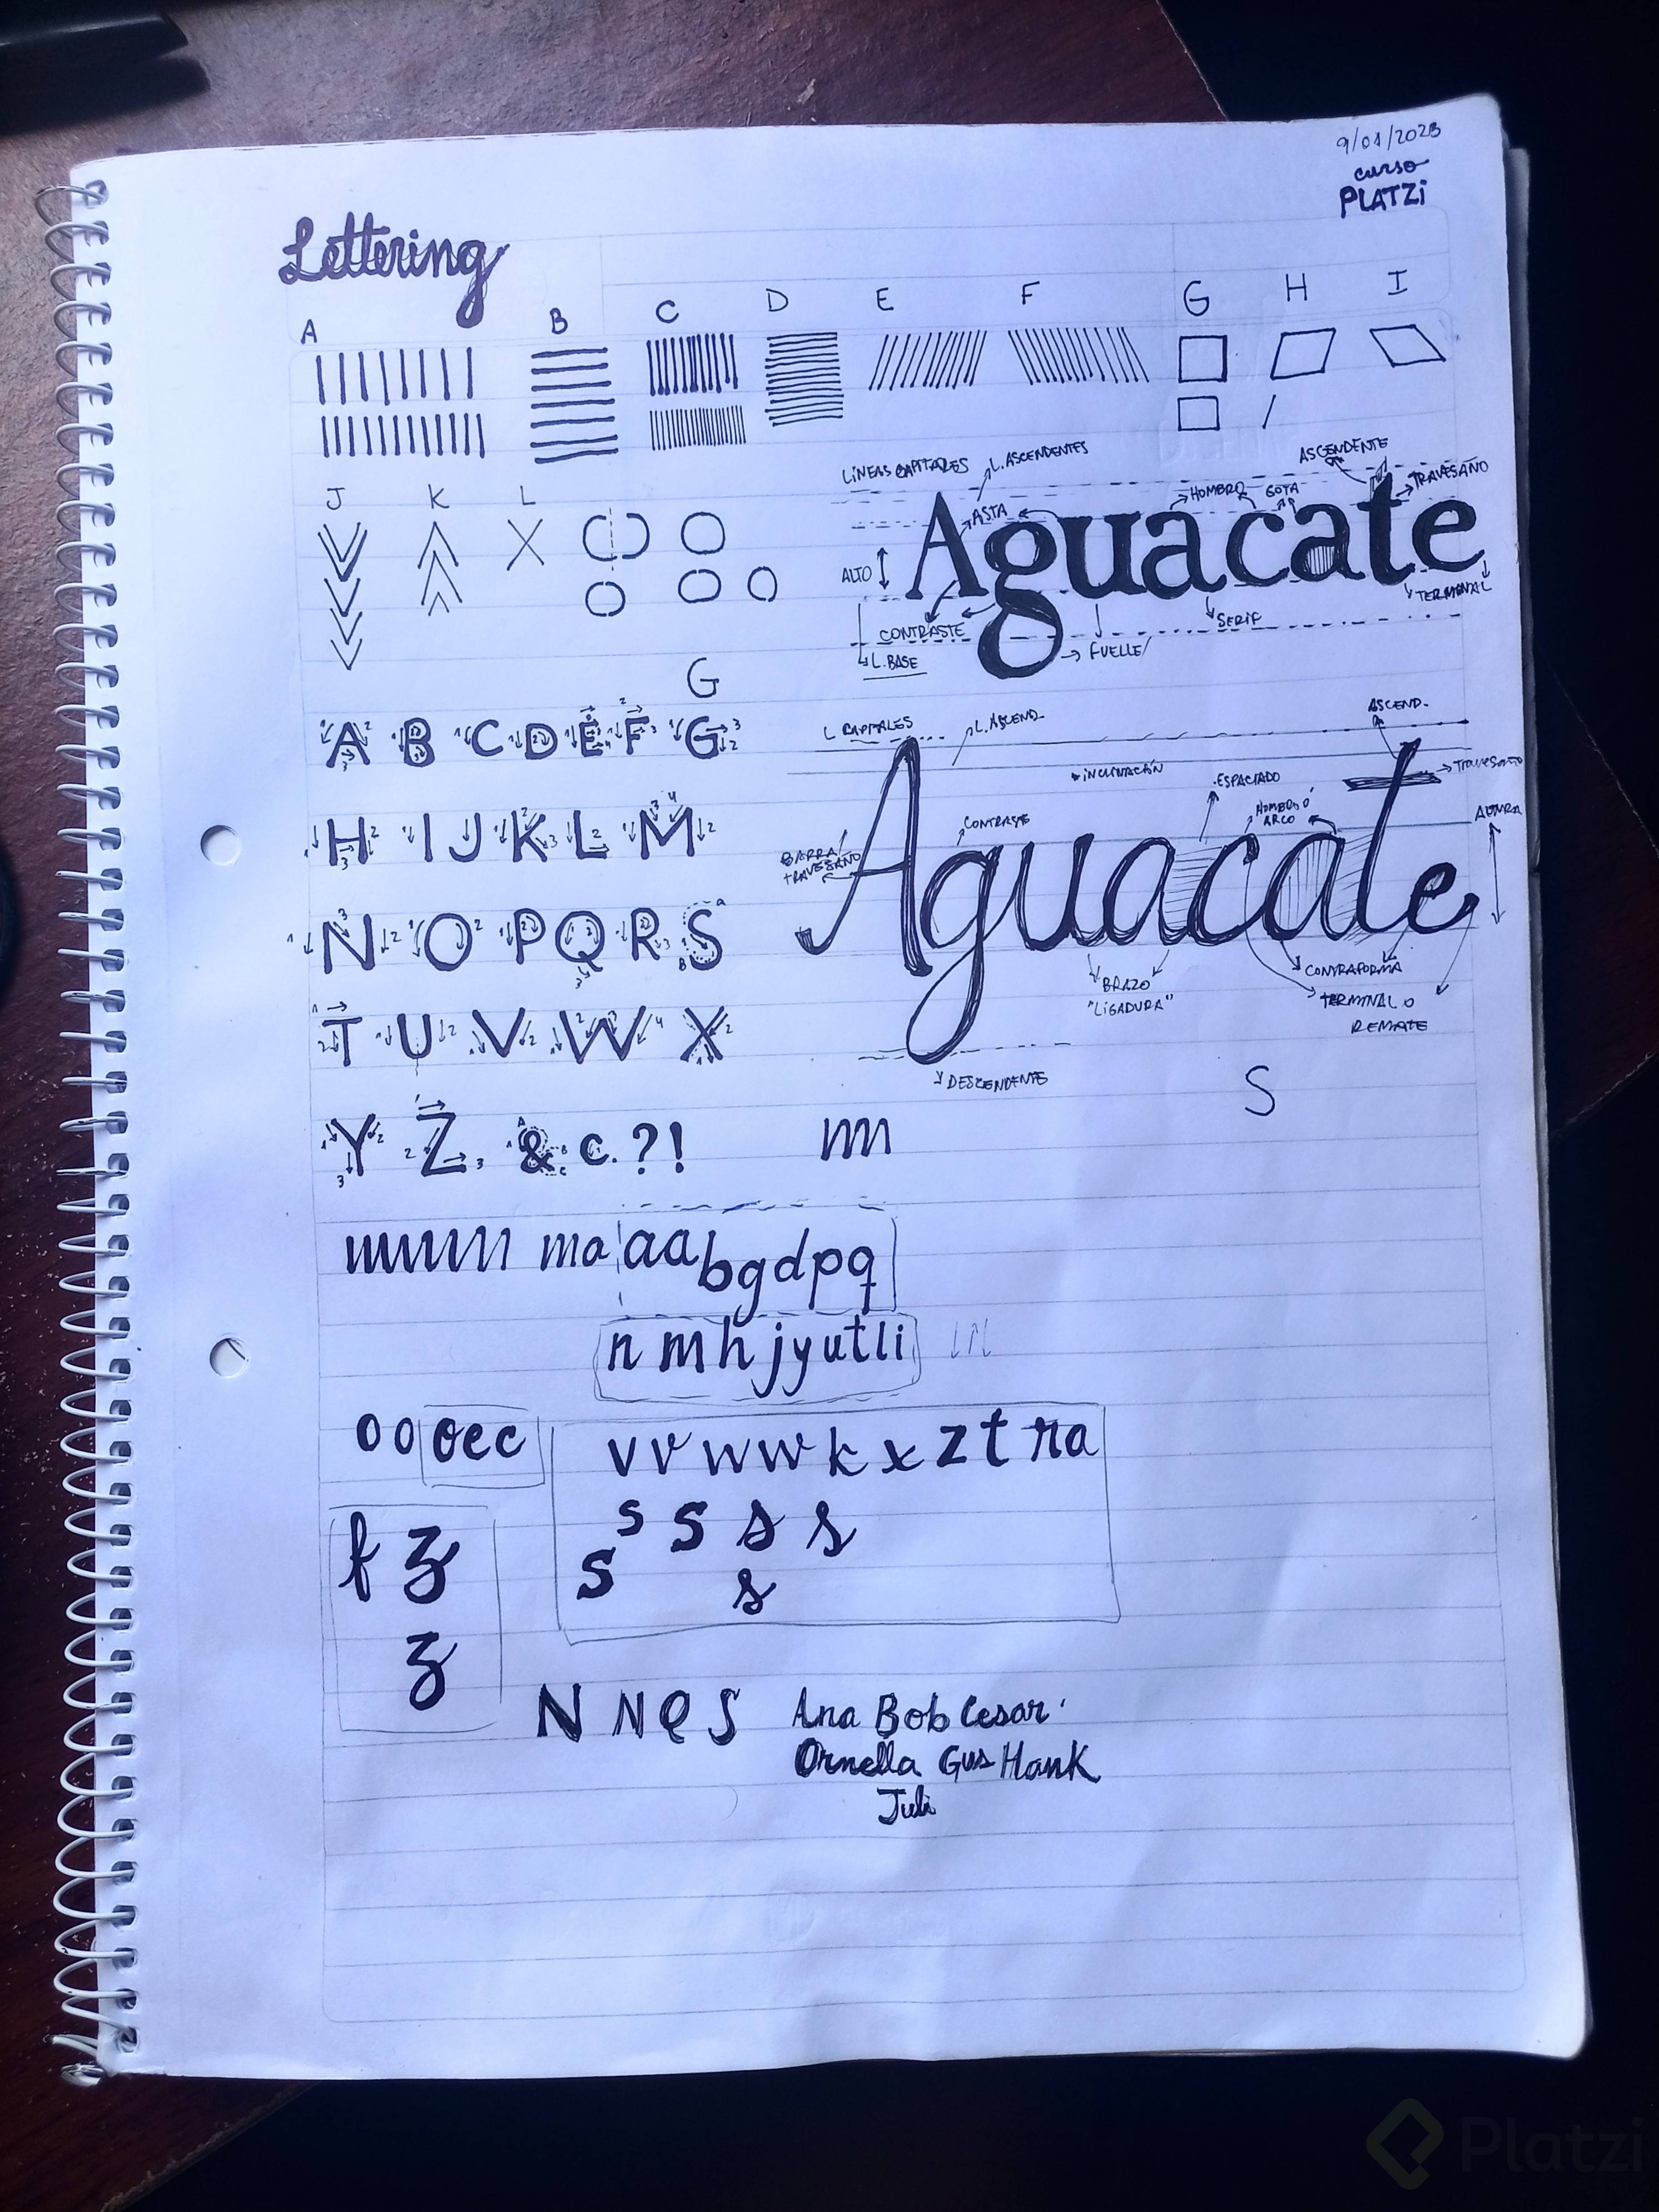 9/01/2023
curso
PLATZi
Lettering
A B C D E F G H I
J K L
LÍNEAS CAPITALES
L. ASCENDENTES
ASCENDENTE
TRAVESAÑO
HOMBRO
GOTA
ASTA
Aguacate
ALTO
TERMINAL
CONTRASTE
SERIF
L. BASE
FUELLE
G
A B C D E F G
H I J K L M
N O P Q R S
T U V W X
Y Z & c. ? !
L CAPITALES
L. ASCEND.
ASCEND.
INCLINACIÓN
ESPACIADO
Travesaño
CONTRASTE
HOMBRO Ó
ARCO
ALTURA
BARRA/
TRAVESAÑO
Aguacate
BRAZO
"LIGADURA"
CONTRAFORMA
TERMINAL O
REMATE
DESCENDENTE
S
ma aa bgdpq
n m h j y u t l i
o o o e c
v v w w k x z t r a
s s s s
s s
f z
z
N N Q S
Ana Bob Cesar
Ornella Gus Hank
Juli
Platzi